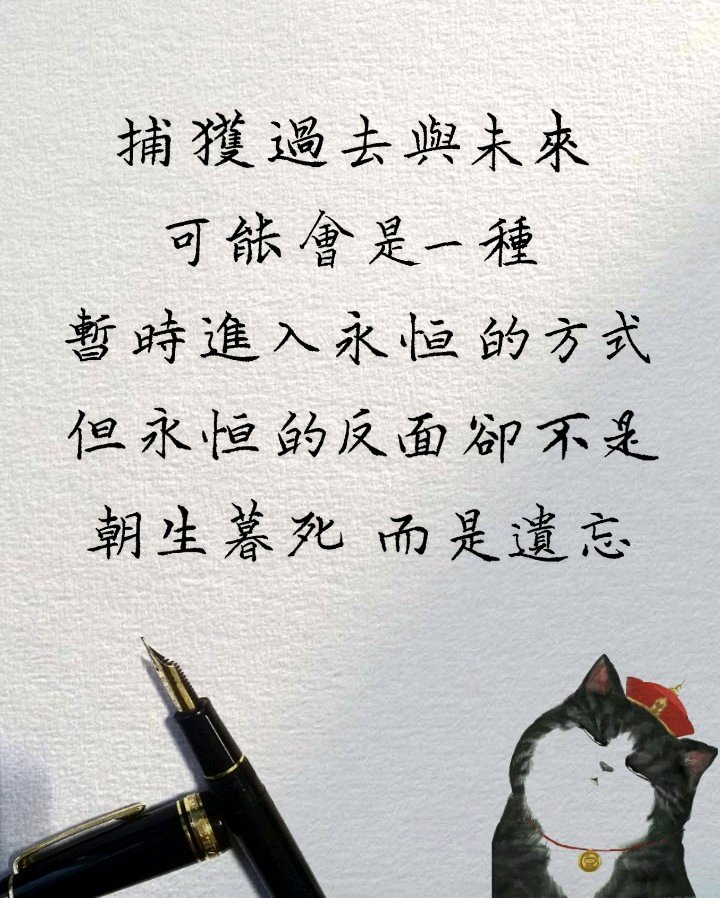 捕獲過去與未來
可能會是一種
暫時進入永恒的方式
但永恒的反面卻不是
朝生暮死 而是遺忘